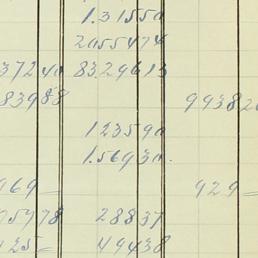 1.31550
2055474
372 40 8329613
83988 99382
123590
1.5693
969 — 929 —
05978 28837
425 — 49438